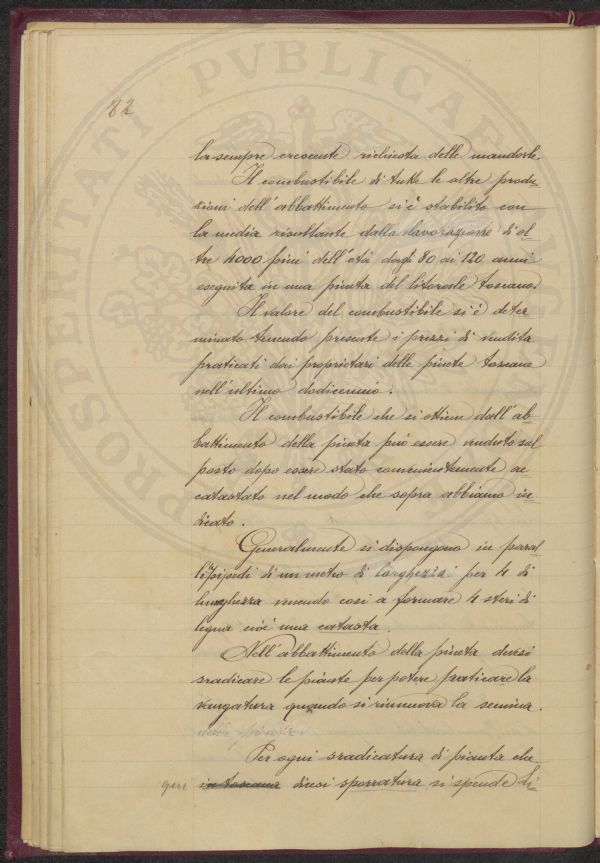 82
la sempre crescente richiesta delle mandorle.
Il combustibile di tutte le altre produ-
zioni dell'abbattimento si è stabilito con
la media risultante dalla lavorazione di ol-
tre 4000 pini dell'età dagli 80 ai 120 anni
eseguita in una pineta del litorale toscano.
Il valore del combustibile si è deter
minato tenendo presente i prezzi di vendita
praticati dai proprietari delle pinete toscane
nell'ultimo dodicennio.
Il combustibile che si ottiene dall'ab-
battimento della pineta può essere venduto sul
posto dopo essere stato convenientemente ac
catastato nel modo che sopra abbiamo in-
dicato.
Generalmente si dispongono in paral
lepipedi di un metro di larghezza per 4 di
lunghezza venendo così a formare 4 steri di
legna cioè una catasta.
Nell'abbattimento della pineta devesi
sradicare le piante per potere praticare la
vangatura quando si rinnuova la semina.
Per ogni sradicatura di pianta che
qui in toscana dicesi sporratura si spende Li-
PROSPERITATI PVBLICAE